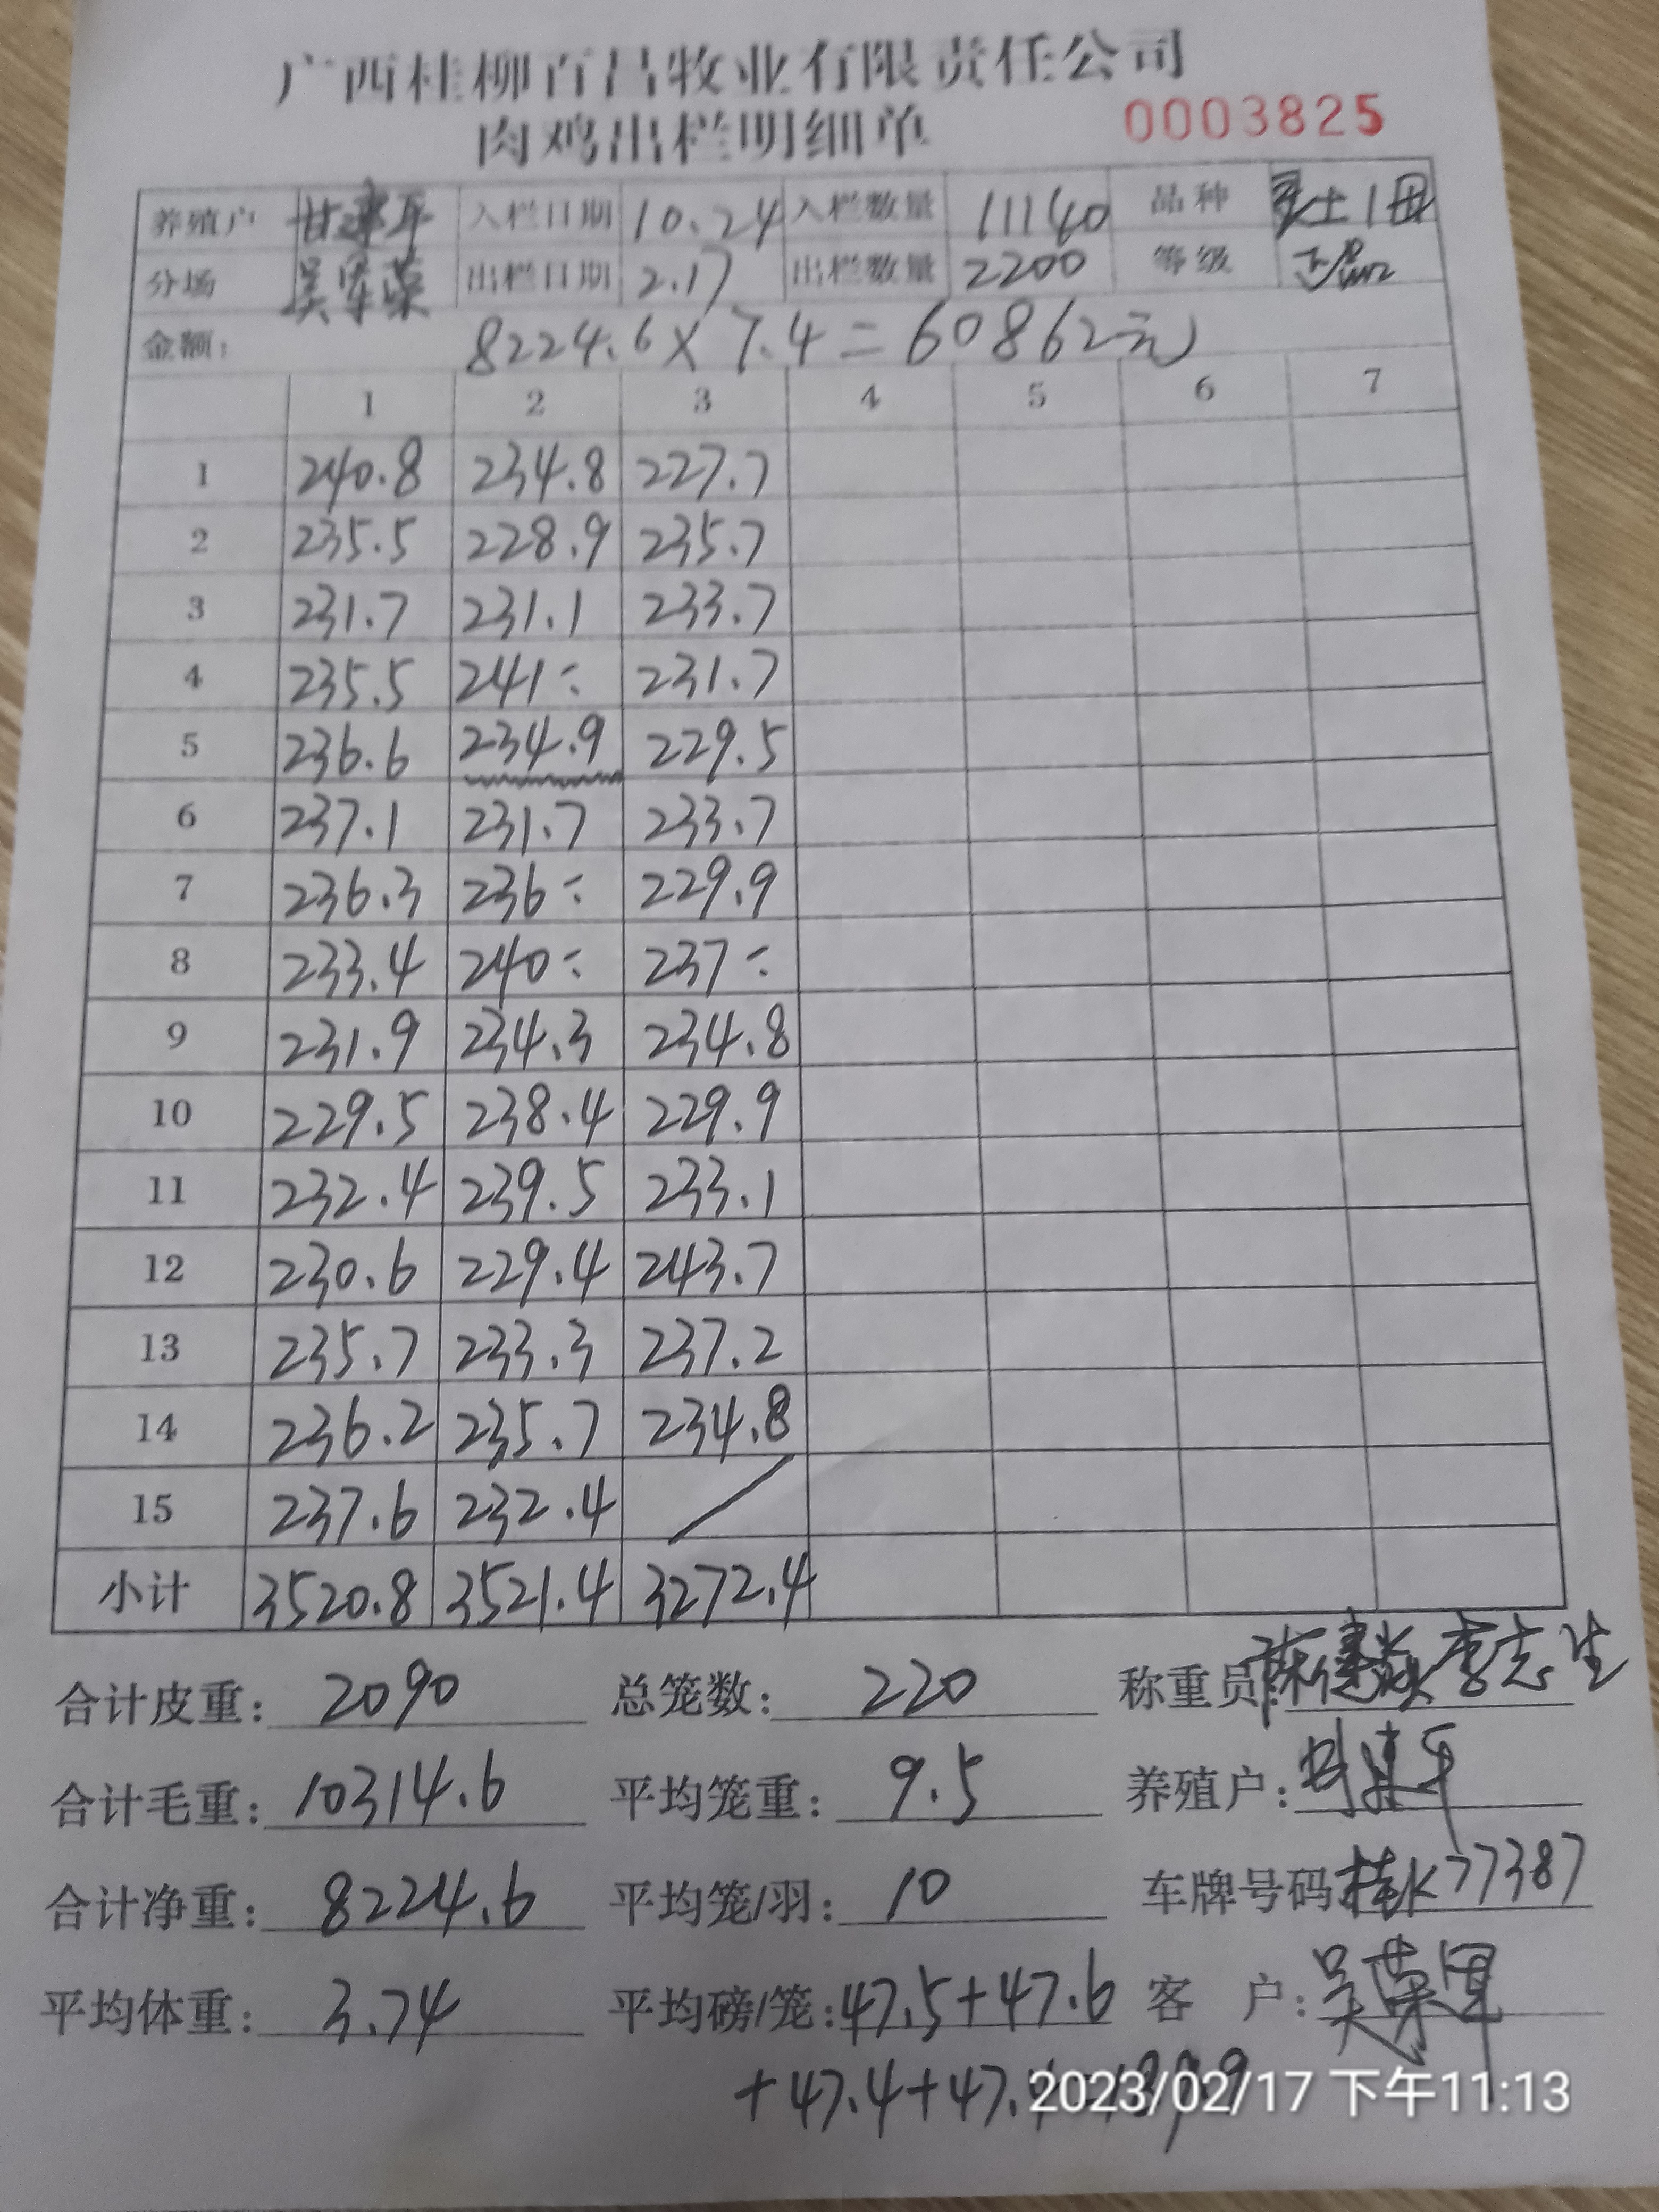 广西桂柳百昌牧业有限责任公司
肉鸡出栏明细单 0003825
养殖户 入栏日期 10.24 入栏数量 11140 品种 土1母
分场 吴军荣 出栏日期 2.17 出栏数量 2200 等级 正品
金额: 8224.6×7.4=60862元
1 2 3 4 5 6 7
1 240.8 234.8 227.7
2 235.5 228.9 235.7
3 231.7 231.1 233.7
4 235.5 241÷ 231.7
5 236.6 234.9 229.5
6 237.1 231.7 233.7
7 236.3 236÷ 229.9
8 233.4 240÷ 237÷
9 231.9 234.3 234.8
10 229.5 238.4 229.9
11 232.4 239.5 233.1
12 230.6 229.4 243.7
13 235.7 233.3 237.2
14 236.2 235.7 234.8
15 237.6 232.4 /
小计 3520.8 3521.4 3272.4
合计皮重: 2090 总笼数: 220 称重员: 李志生
合计毛重: 10314.6 平均笼重: 9.5 养殖户:
合计净重: 8224.6 平均笼/羽: 10 车牌号码: 桂K77387
平均体重: 3.74 平均磅/笼: 47.5+47.6 客户: 吴荣军
+47.4+47.
2023/02/17 下午11:13